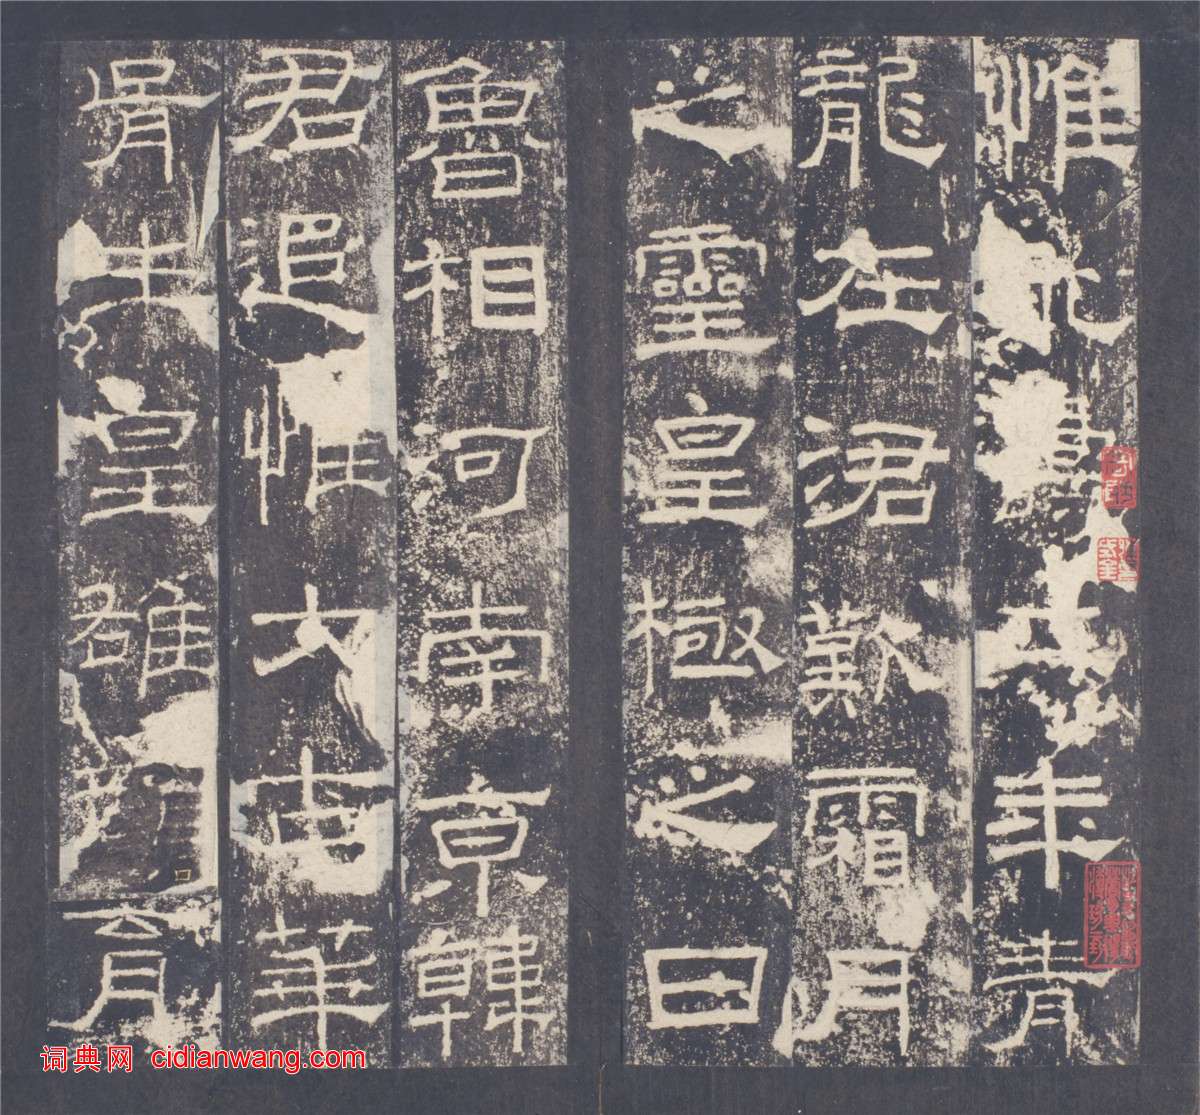 惟永壽二年青
龍在涒歎霜月
之靈皇極之日
魯相河南京韓
君追惟太古華
胥生皇雄顏育
词典网 cidianwang.com